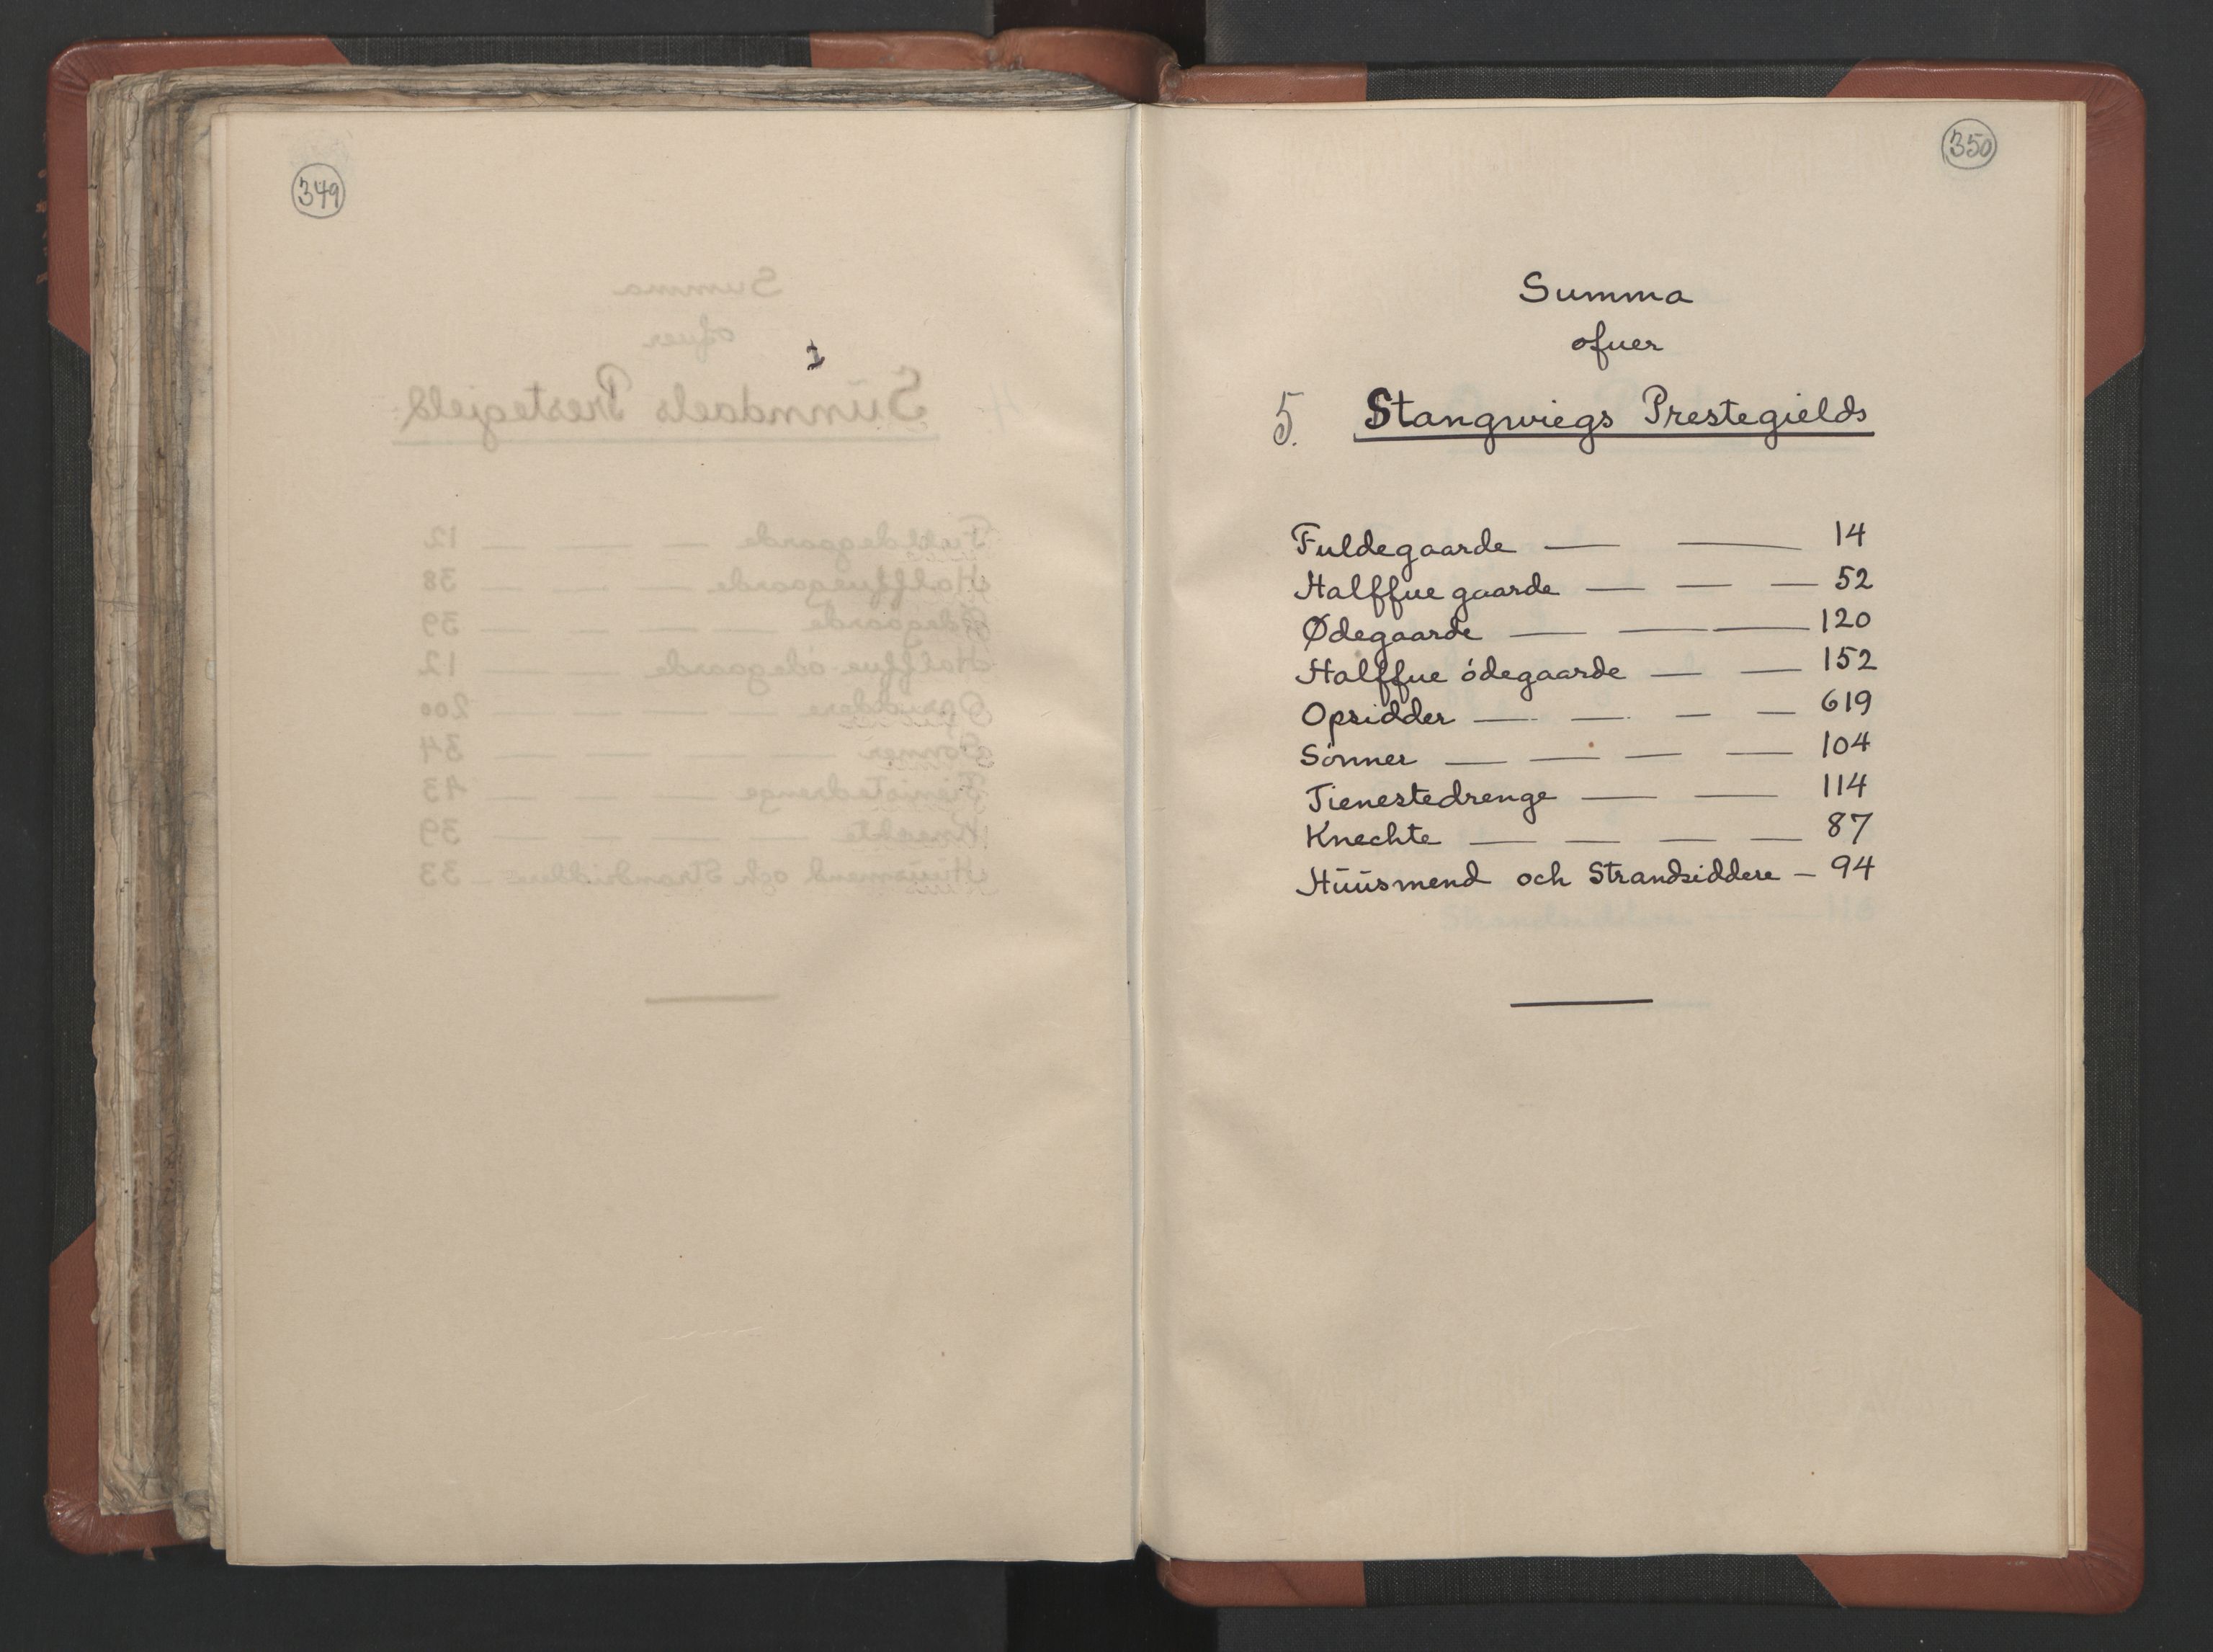 349
350
Summa
ofuer
5. Stangwiegs Prestegields
Fuldegaarde — — 14
Halffue gaarde — — — 52
Ødegaarde — — — 120
Halffue ódegaarde — — 152
Opsidder — — — — 619
Sónner — — — — 104
Tienestedrenge — — 114
Knechte — — — — 87
Hüüsmend och Strandsiddere — 94